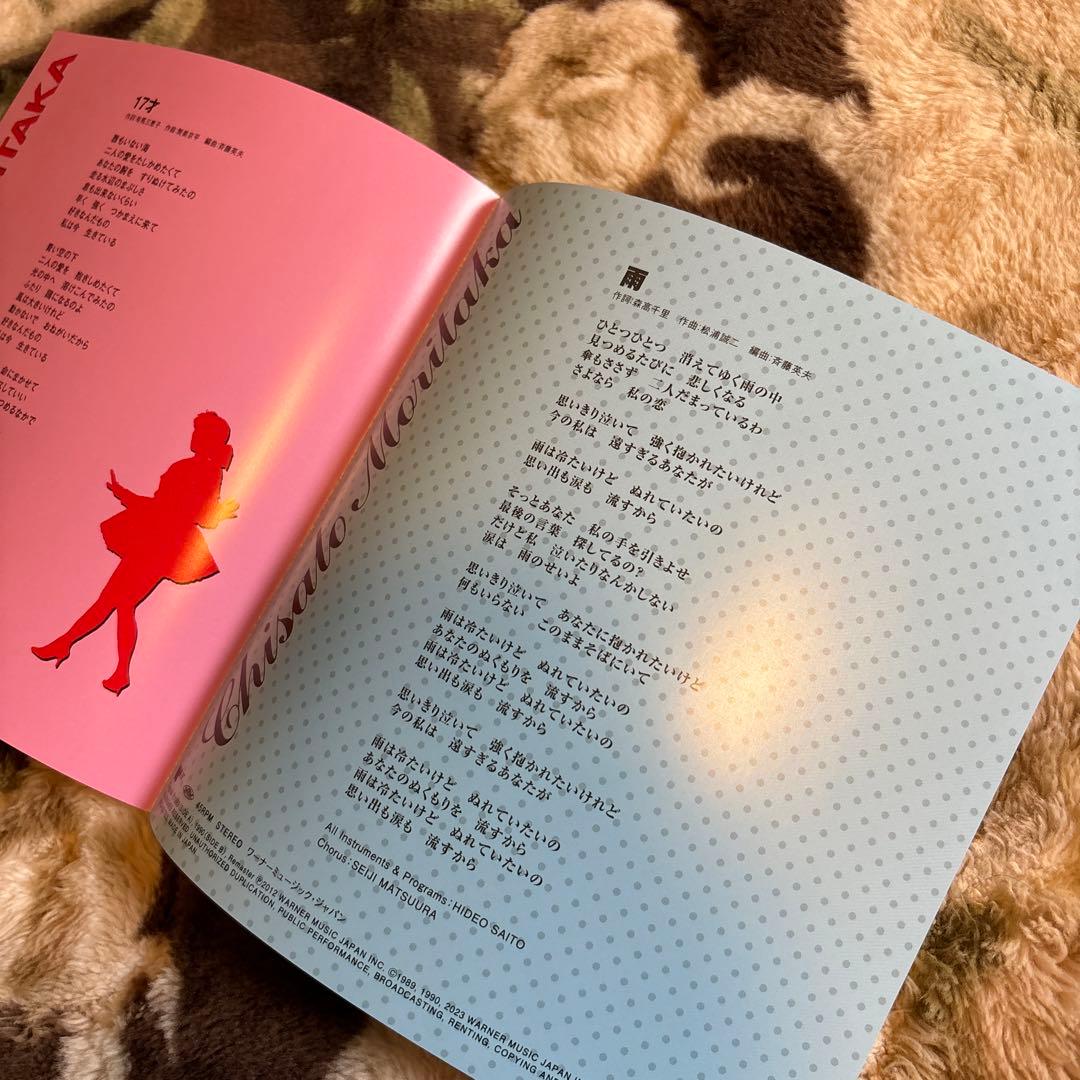 ITAKA
17才
作詞:有馬三恵子 作曲:筒美京平 編曲:斉藤英夫
誰もいない海
二人の愛をたしかめたくて
あなたの腕を すりぬけてみたの
走る水辺のまぶしさ
息も出来ないくらい
早く 強く つかまえに来て
好きなんだもの
私は今 生きている
青い空の下
二人の愛を 抱きしめたくて
光の中へ 溶けこんでみたの
ふたり 鴎になるのよ
風は大きいけれど
動かないで おねがいだから
好きなんだもの
は今 生きている
命にまかせて
つめるなかで
Chisato Moritaka
雨
作詞:森高千里 作曲:松浦誠二 編曲:斉藤英夫
ひとつひとつ 消えてゆく雨の中
見つめるたびに 悲しくなる
傘もささず 二人だまっているわ
さよなら 私の恋
思いきり泣いて 強く抱かれたいけれど
今の私は 遠すぎるあなたが
雨は冷たいけど ぬれていたいの
思い出も涙も 流すから
そっとあなた 私の手を引きよせ
最後の言葉 探してるの?
だけど私 泣いたりなんかしない
涙は 雨のせいよ
思いきり泣いて あなたに抱かれたいけど
何もいらない このままそばにいて
雨は冷たいけど ぬれていたいの
あなたのぬくもりを 流すから
雨は冷たいけど ぬれていたいの
思い出も涙も 流すから
思いきり泣いて 強く抱かれたいけれど
今の私は 遠すぎるあなたが
雨は冷たいけど ぬれていたいの
あなたのぬくもりを 流すから
雨は冷たいけど ぬれていたいの
思い出も涙も 流すから
All Instruments & Programs : HIDEO SAITO
Chorus : SEIJI MATSUURA
45RPM STEREO ワーナーミュージック・ジャパン
(SIDE A), 1990 (SIDE B), Remaster ℗2012 WARNER MUSIC JAPAN INC. ©1989, 1990, 2023 WARNER MUSIC JAPAN
RESERVED. UNAUTHORIZED DUPLICATION, PUBLIC PERFORMANCE, BROADCASTING, RENTING, COPYING AN
MADE IN JAPAN.